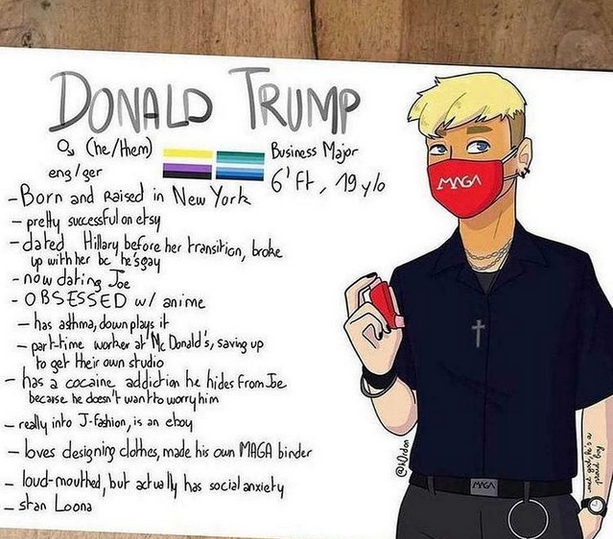 DONALD TRUMP
(he/them)
eng/ger
Business Major
6' Ft, 19 y/o
- Born and Raised in New York
- pretty successful on etsy
- dated Hillary before her transition, broke
up with her bc he's gay
- now dating Joe
- OBSESSED w/ anime
- has asthma, downplays it
- part-time worker at Mc Donald's, saving up
to get their own studio
- has a cocaine addiction he hides from Joe
because he doesn't want to worry him
- really into J-fashion, is an eboy
- loves designing clothes, made his own MAGA binder
- loud-mouthed, but actually has social anxiety
- stan Loona
MAGA
MAGA
he's a
proud boy